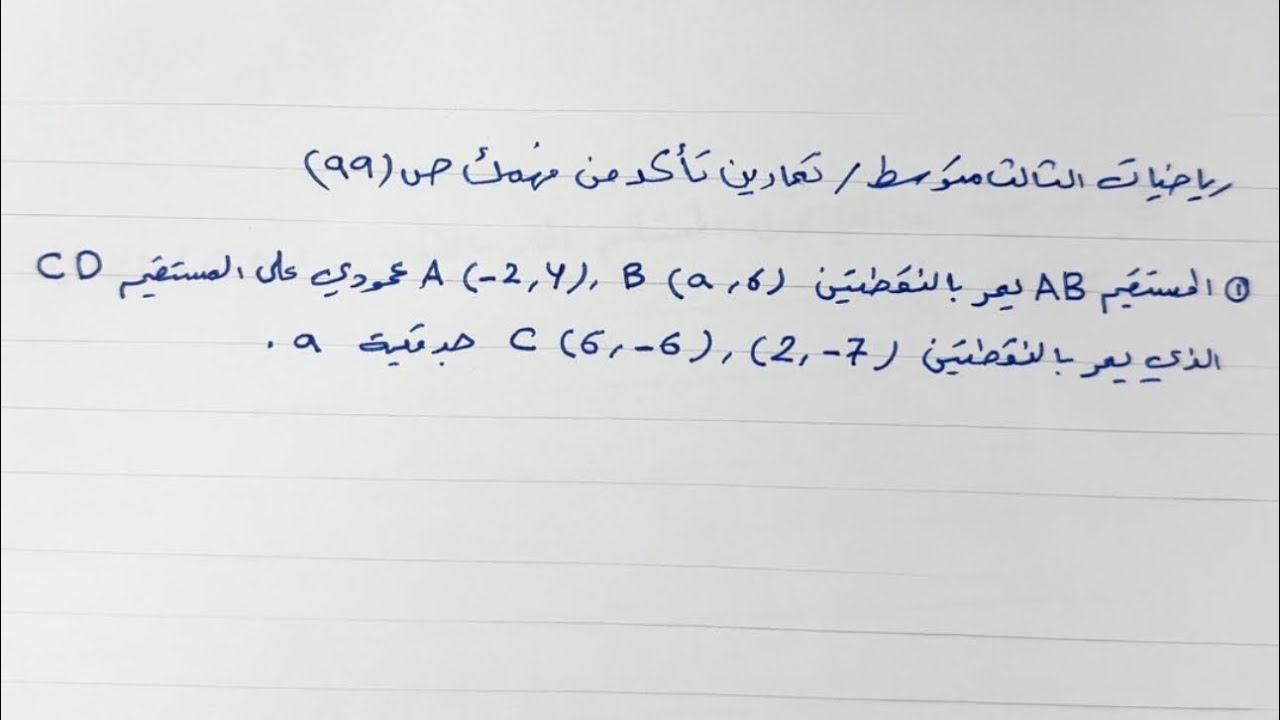 رياضيات الثالث متوسط / تمارين تأكد من فهمك ص (99)
① المستقيم AB يمر بالنقطتين A (-2,4), B (a,6) عمودي على المستقيم CD
الذي يمر بالنقطتين C (6,-6), (2,-7) جد قيمة a .